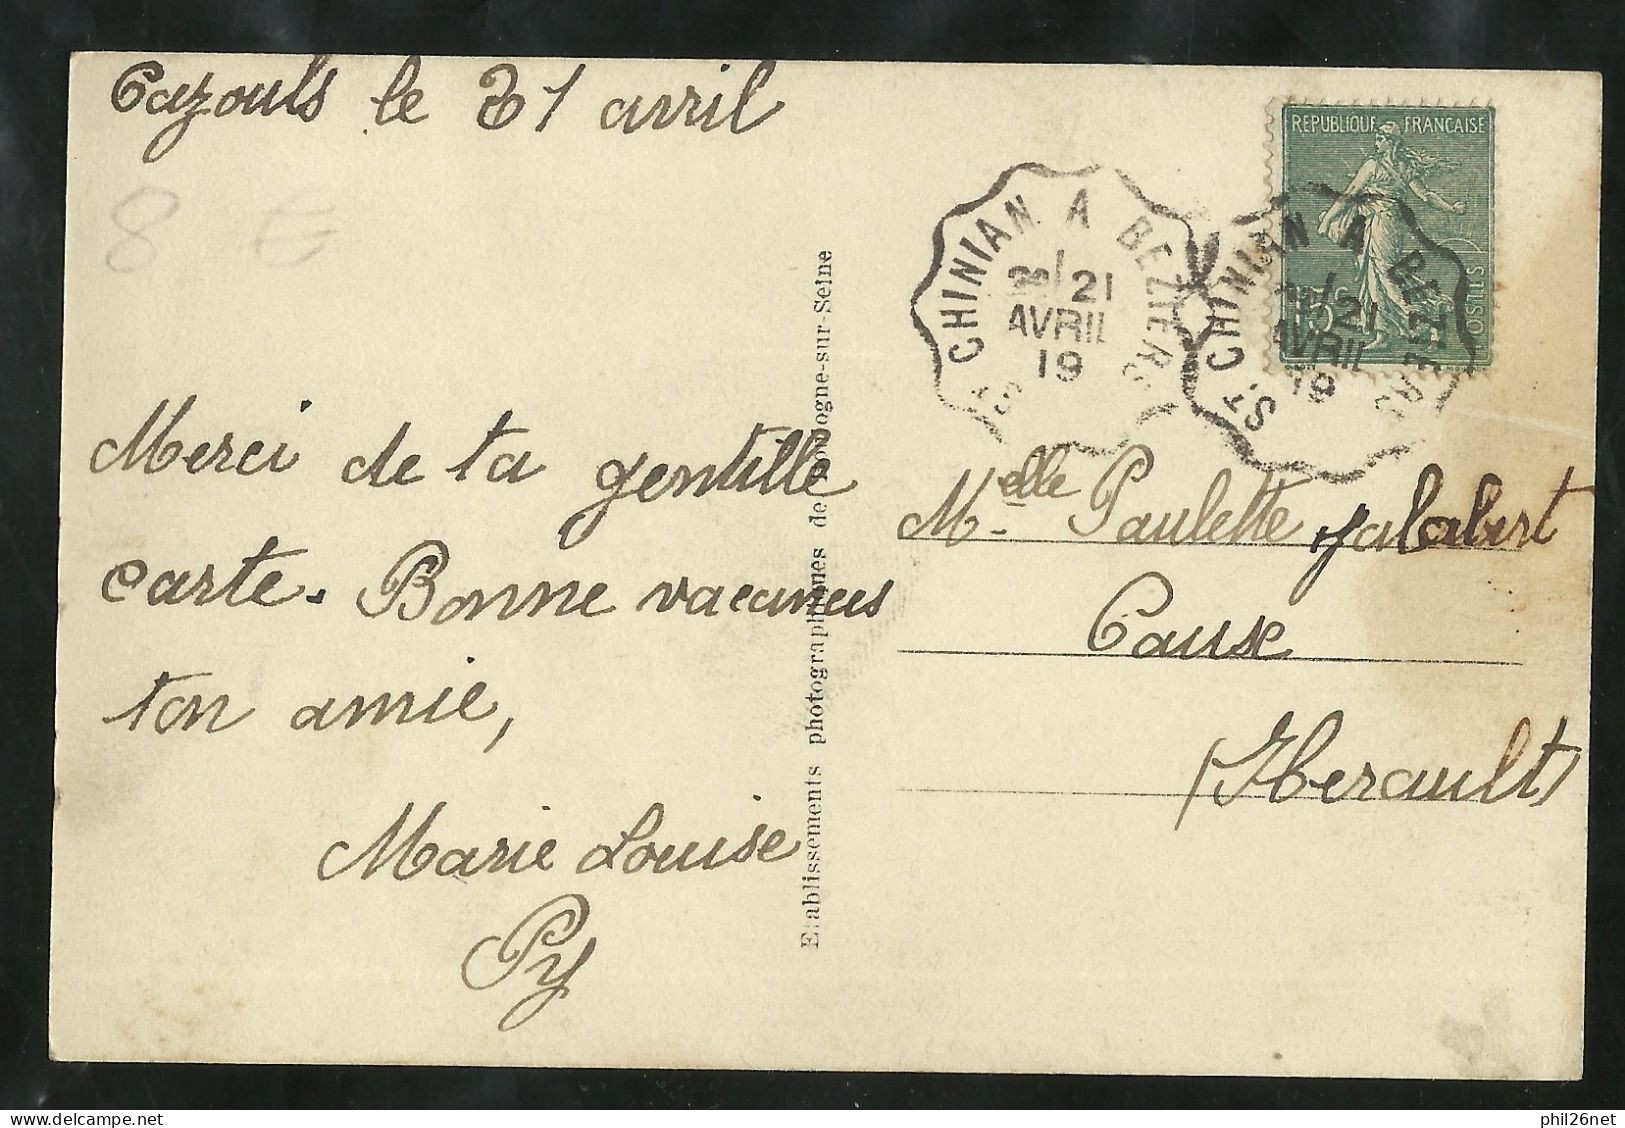 Cazouls le 21 avril
8 €
REPUBLIQUE FRANCAISE
POSTES
ST CHINIAN A BEZIERS
2º/21
AVRIL
19
ST CHINIAN A BEZIERS
2º/21
AVRIL
19
Merci de ta gentille
carte. Bonne vacances
ton amie,
Marie Louise
Py
Etablissements photographiques de Boulogne-sur-Seine
Melle Paulette Jalabert
Causse
(Herault)
phil26net